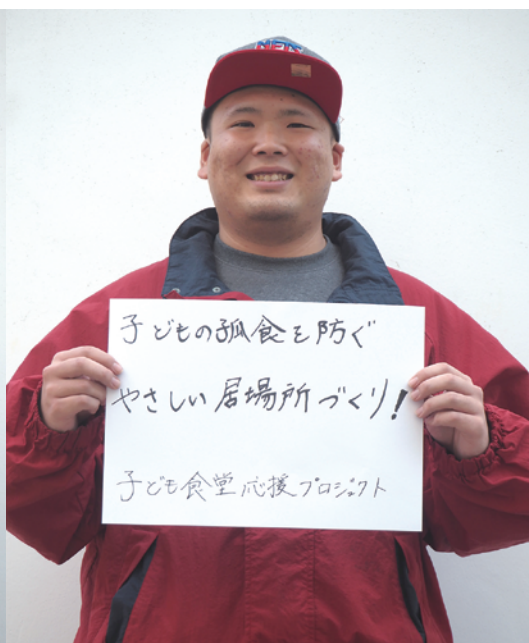 NETS
子どもの孤食を防ぐ
やさしい居場所づくり!
子ども食堂応援プロジェクト